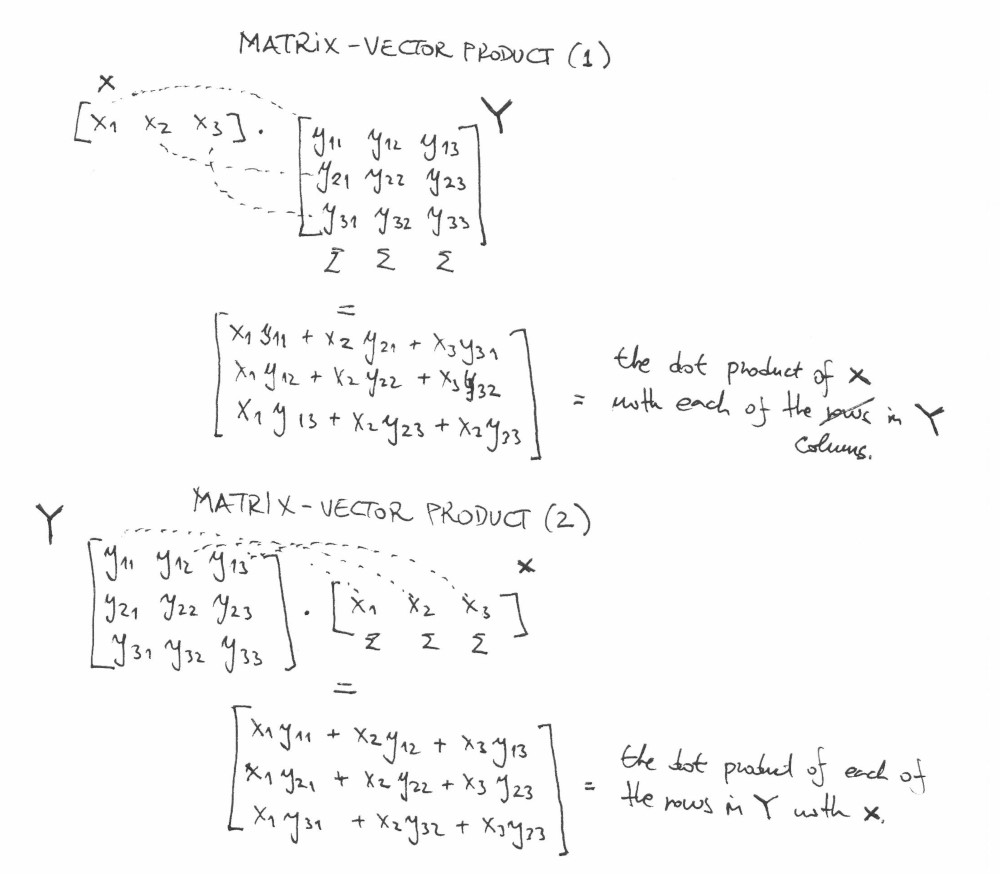 MATRIX - VECTOR PRODUCT (1)
x
[x1 x2 x3] . [y11 y12 y13 Y
y21 y22 y23
y31 y32 y33]
Σ Σ Σ
=
[x1 y11 + x2 y21 + x3 y31
x1 y12 + x2 y22 + x3 y32
x1 y13 + x2 y23 + x2 y33]
the dot product of x
= with each of the rows in Y
colums.
MATRIX - VECTOR PRODUCT (2)
Y
[y11 y12 y13
y21 y22 y23
y31 y32 y33]
x
. [x1 x2 x3]
Σ Σ Σ
=
[x1 y11 + x2 y12 + x3 y13
x1 y21 + x2 y22 + x3 y23
x1 y31 + x2 y32 + x3 y33]
the dot product of each of
= the rows in Y with x.